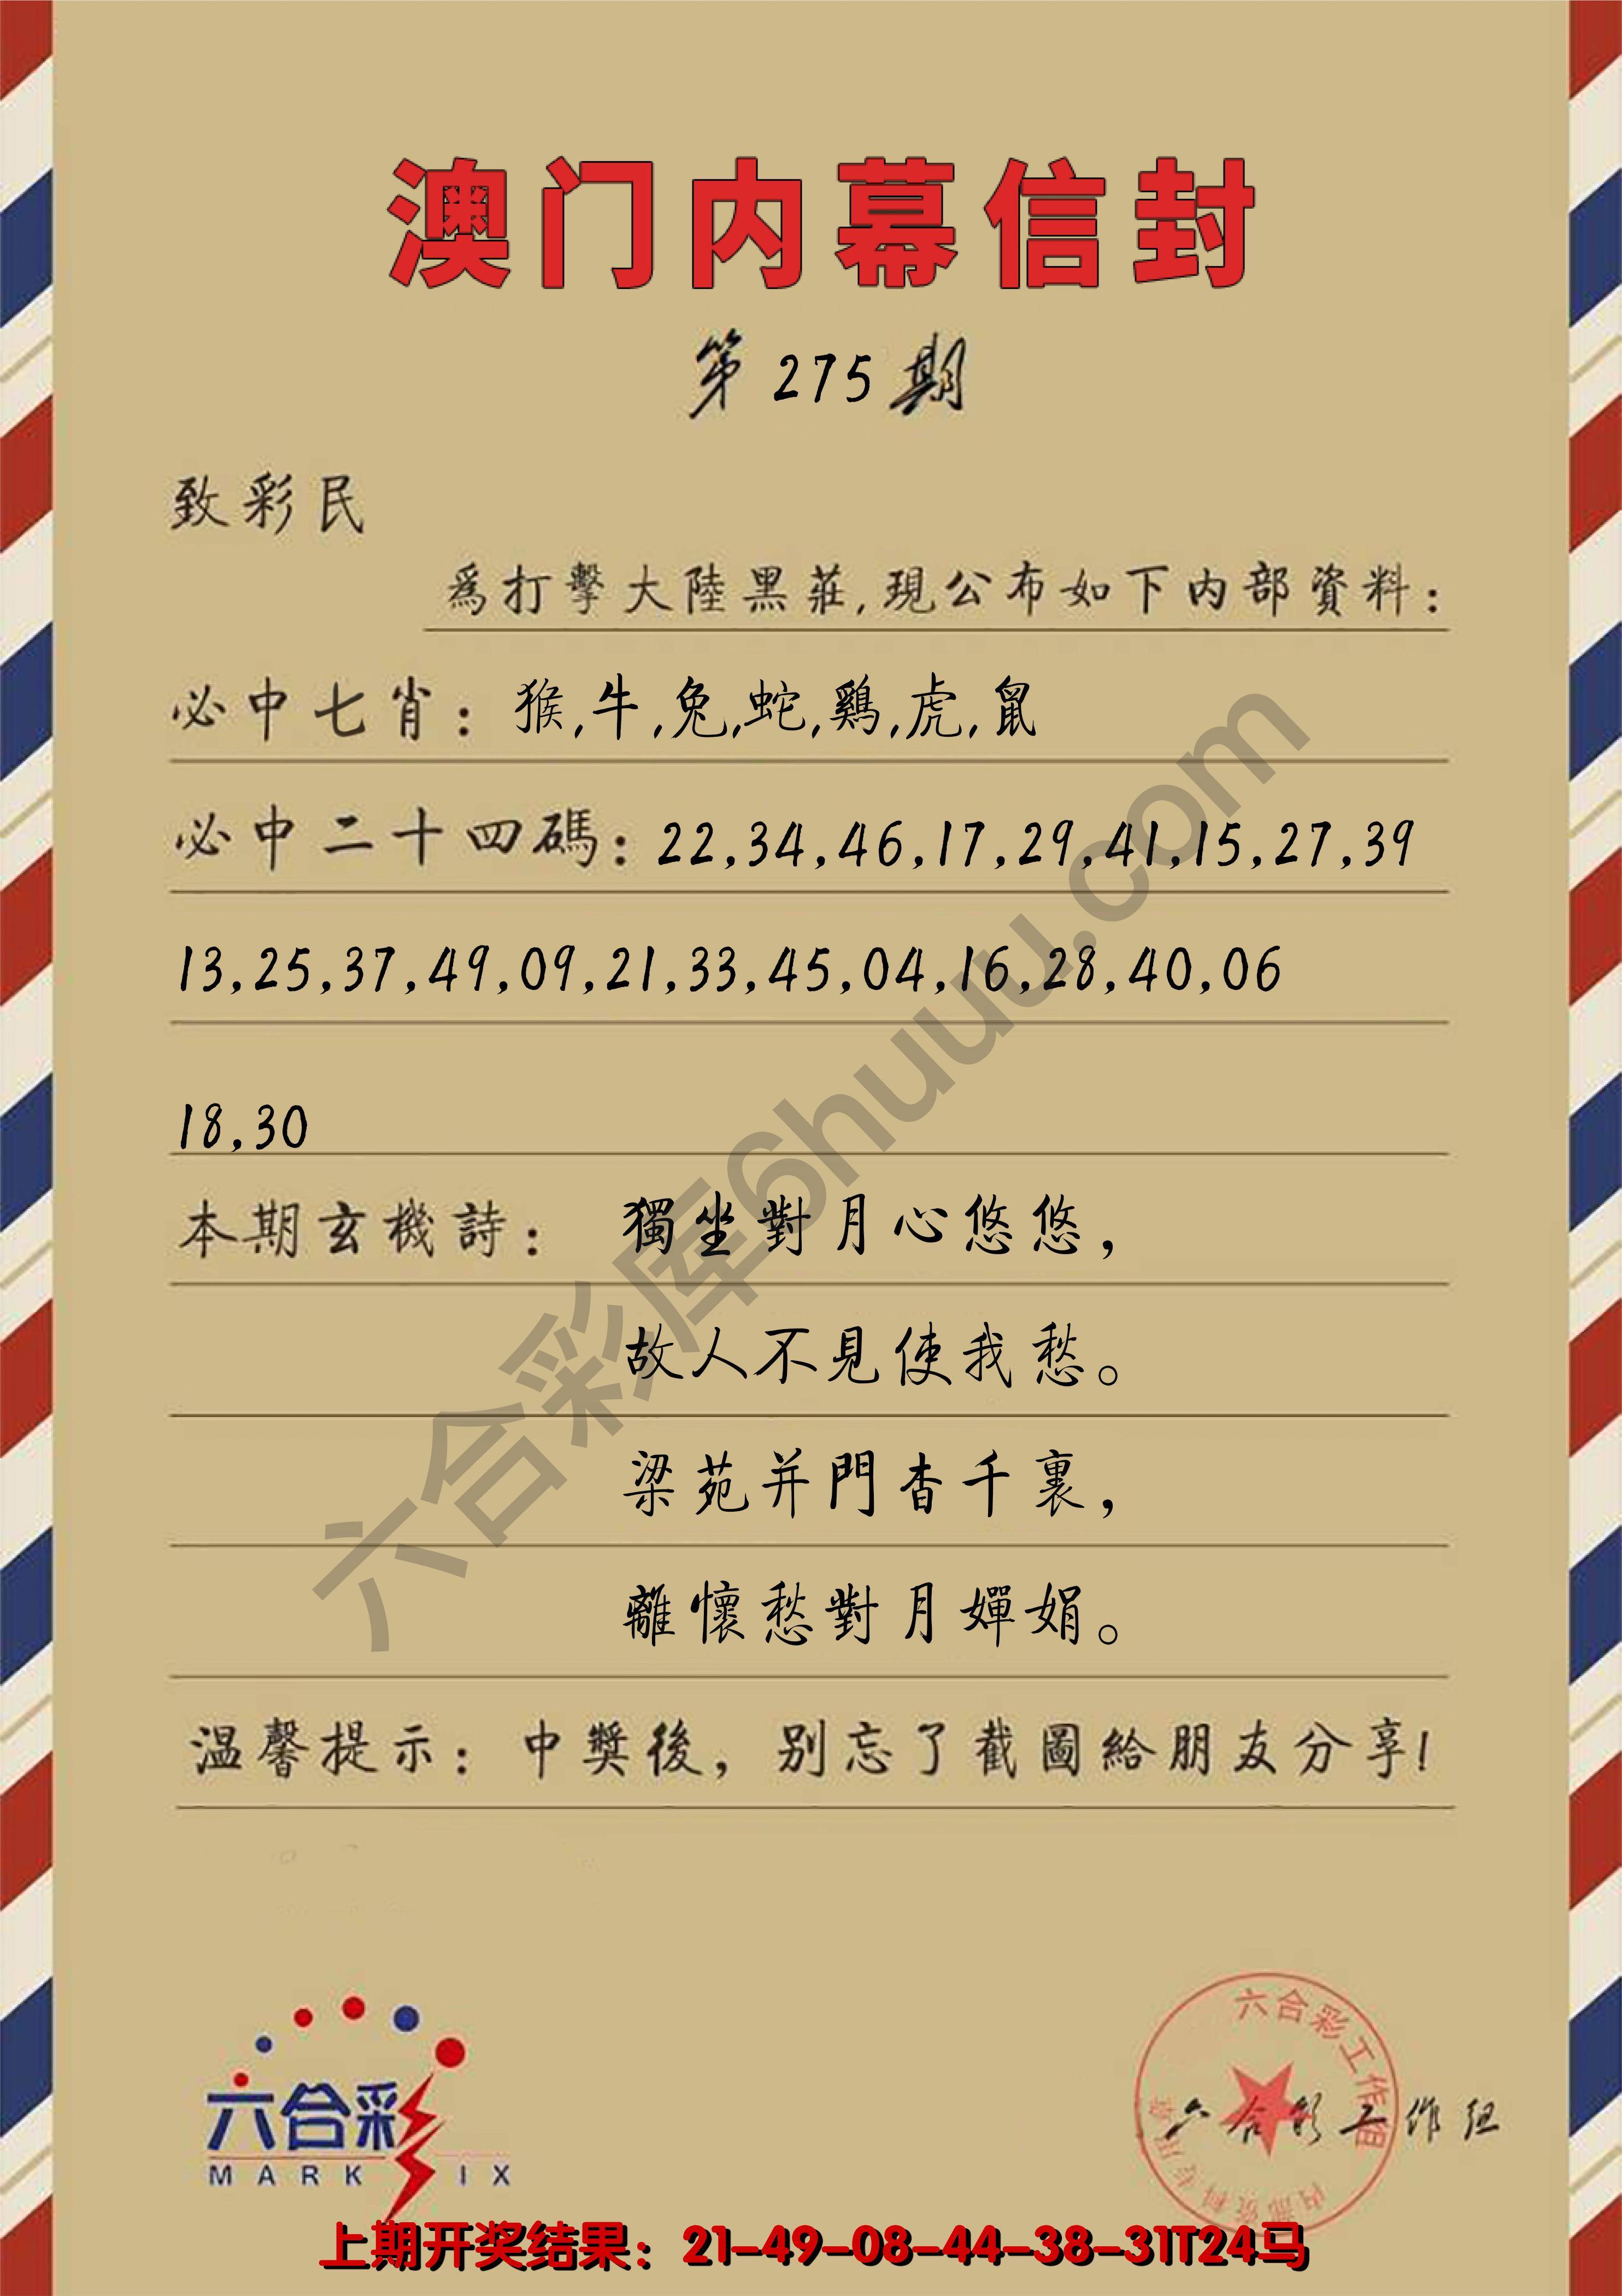 澳门内幕信封
第275期
致彩民
爲打擊大陸黑莊,現公布如下内部資料:
必中七肖:猴,牛,兔,蛇,鷄,虎,鼠
必中二十四碼:22,34,46,17,29,41,15,27,39
13,25,37,49,09,21,33,45,04,16,28,40,06
18,30
本期玄機詩: 獨坐對月心悠悠,
故人不見使我愁。
梁苑并門杳千裏,
離懷愁對月嬋娟。
温馨提示:中獎後,别忘了截圖給朋友分享!
六合彩库6huuu.com
六合彩
MARK IX
六合彩工作组
内部资料专用章
六合彩工作组
上期开奖结果:21-49-08-44-38-31T24马